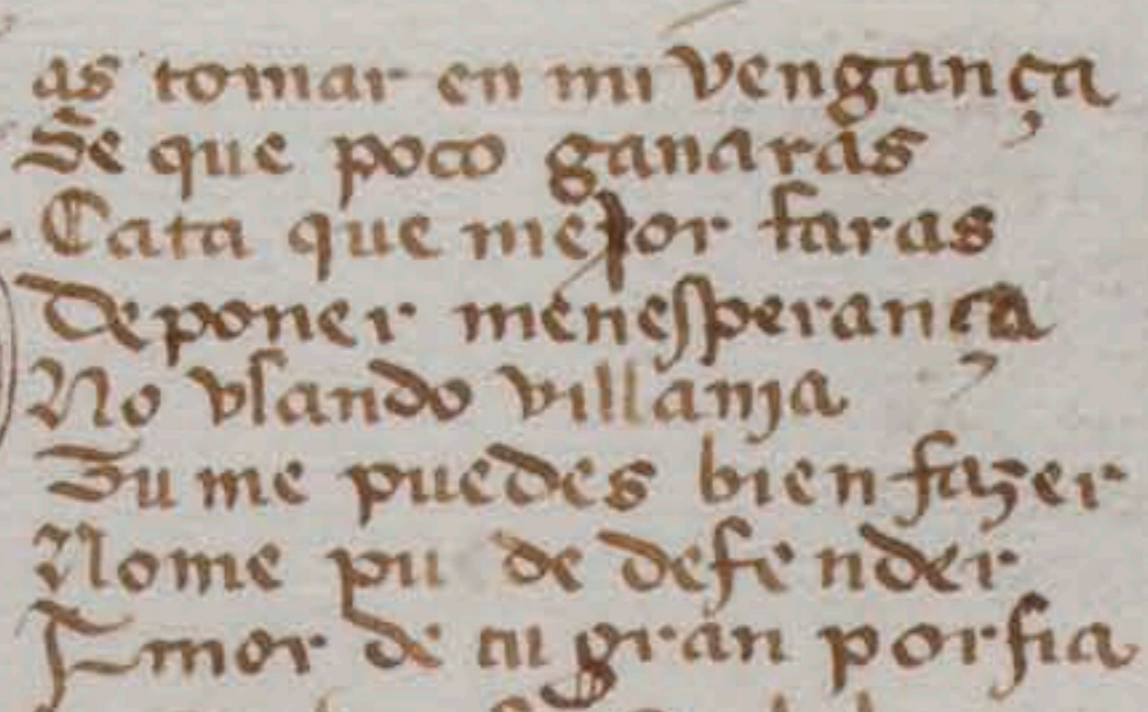 as tomar en mi vengança
Se que poco ganaras
Cata que mejor faras
De poner menesperança
No vsando villanja
Tu me puedes bien fazer
Nome pu de defender
Amor de tu gran porfia